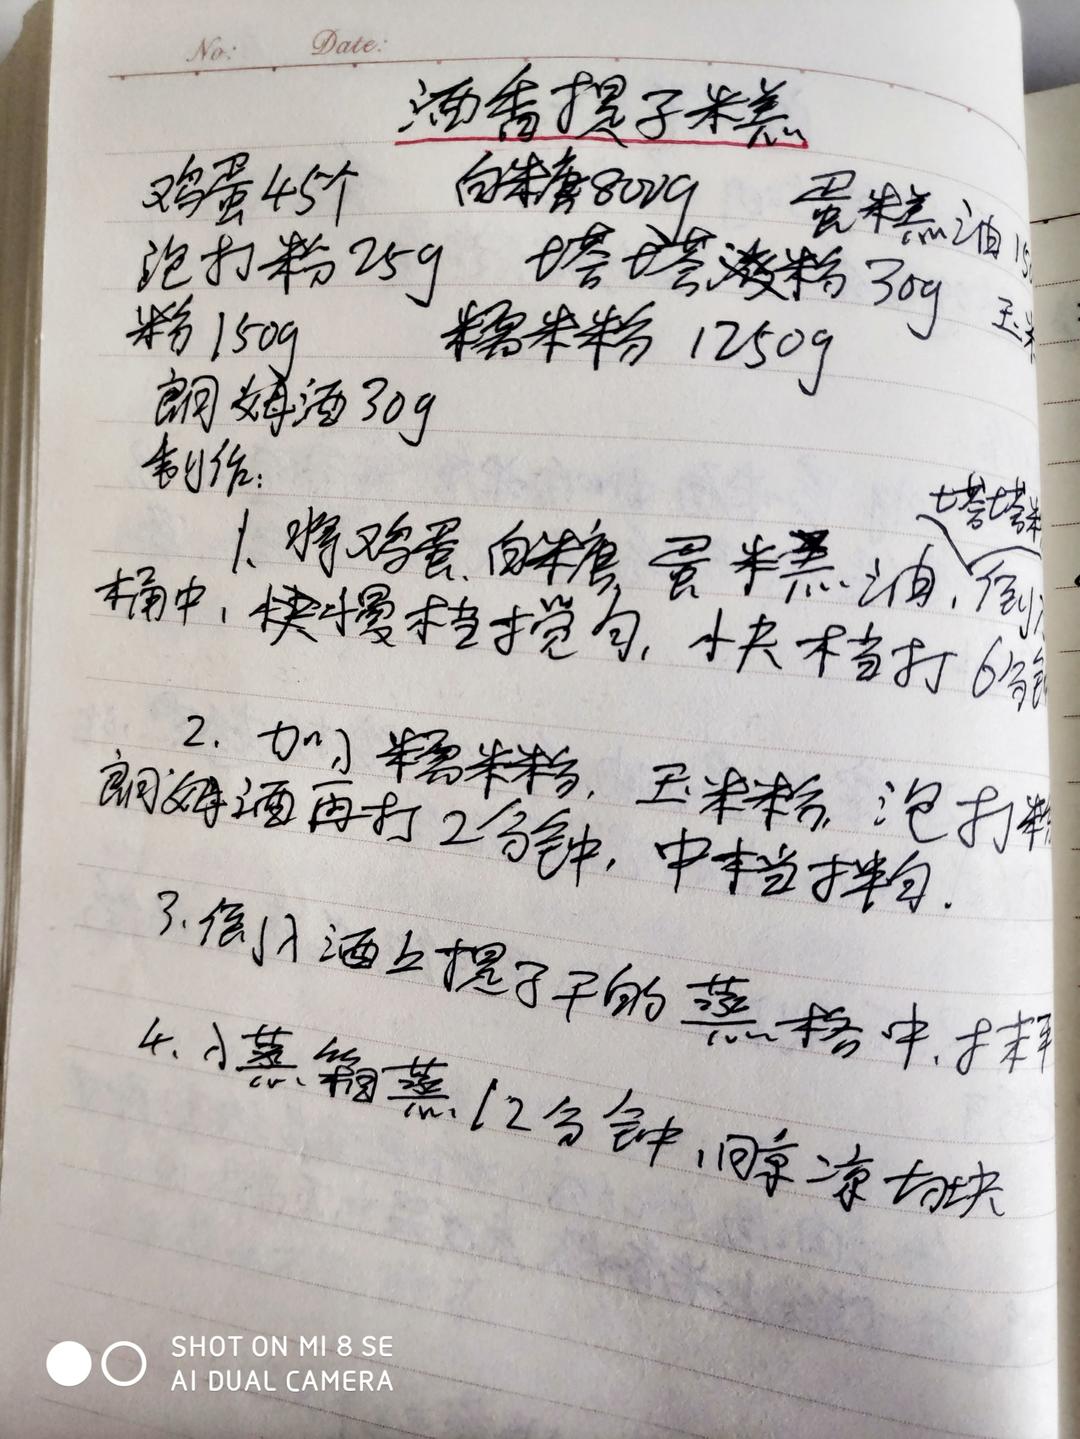 No: Date:
酒香提子糕
鸡蛋45个 白糖800g 蛋糕油15
泡打粉25g 塔塔粉30g 玉米
粉150g 糯米粉1250g
朗姆酒30g
制作:
塔塔粉
1、将鸡蛋、白糖、蛋糕油、倒入
桶中,快慢档搅匀,快档打6分钟
2. 加入糯米粉,玉米粉,泡打粉
朗姆酒再打2分钟,中档拌匀.
3.倒入洒上提子干的蒸格中,抹平
4.入蒸箱蒸12分钟,晾凉切块
SHOT ON MI 8 SE
AI DUAL CAMERA